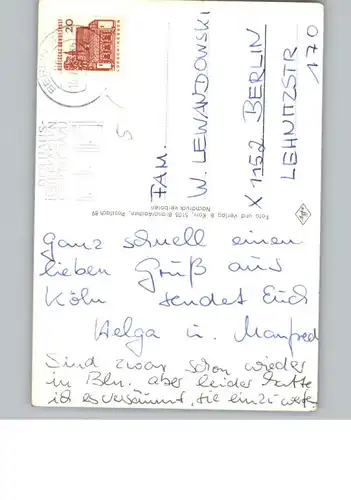 Ganz schnell einen
lieben Gruß aus
Köln sendet Euch
Helga u. Manfred
Sind zwar schon wieder
in Bln. aber leider hatte
ich es versäumt, sie einzuwerfen
FAM.
W. LEWANDOWSKI
X 1152 BERLIN
LEHNITZSTR
170
Foto und Verlag B. Korr, 5105 Brand/Aachen, Postfach 89
Nachdruck verboten
DEUTSCHE BUNDESPOST
20
BERLIN